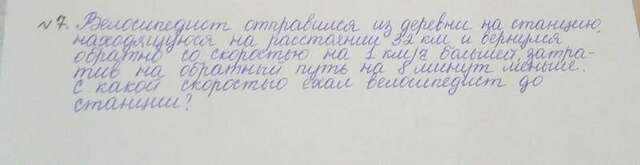 №7. Велосипедист отправился из деревни на станцию,
находящуюся на расстоянии 32 км и вернулся
обратно со скоростью на 1 км/ч большей, затра-
тив на обратный путь на 8 минут меньше.
С какой скоростью ехал велосипедист до
станции?